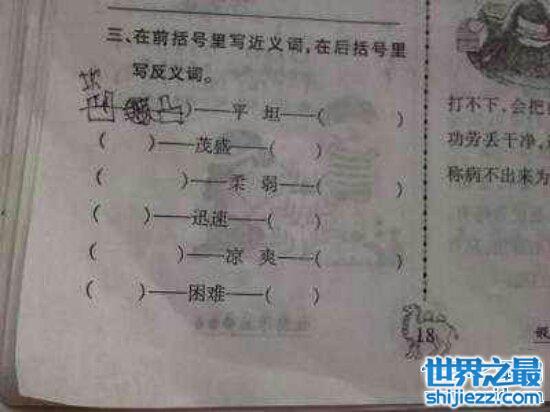 三、在前括号里写近义词，在后括号里
写反义词。
凹凸)——平 坦——( )
( )——茂盛——( )
( )——柔 弱——( )
( )——迅速——( )
( )——凉 爽——( )
( )——困难——( )
18
打不下，会把
功劳丢干净，
称病不出来为
世界之最
shijiezzi.com